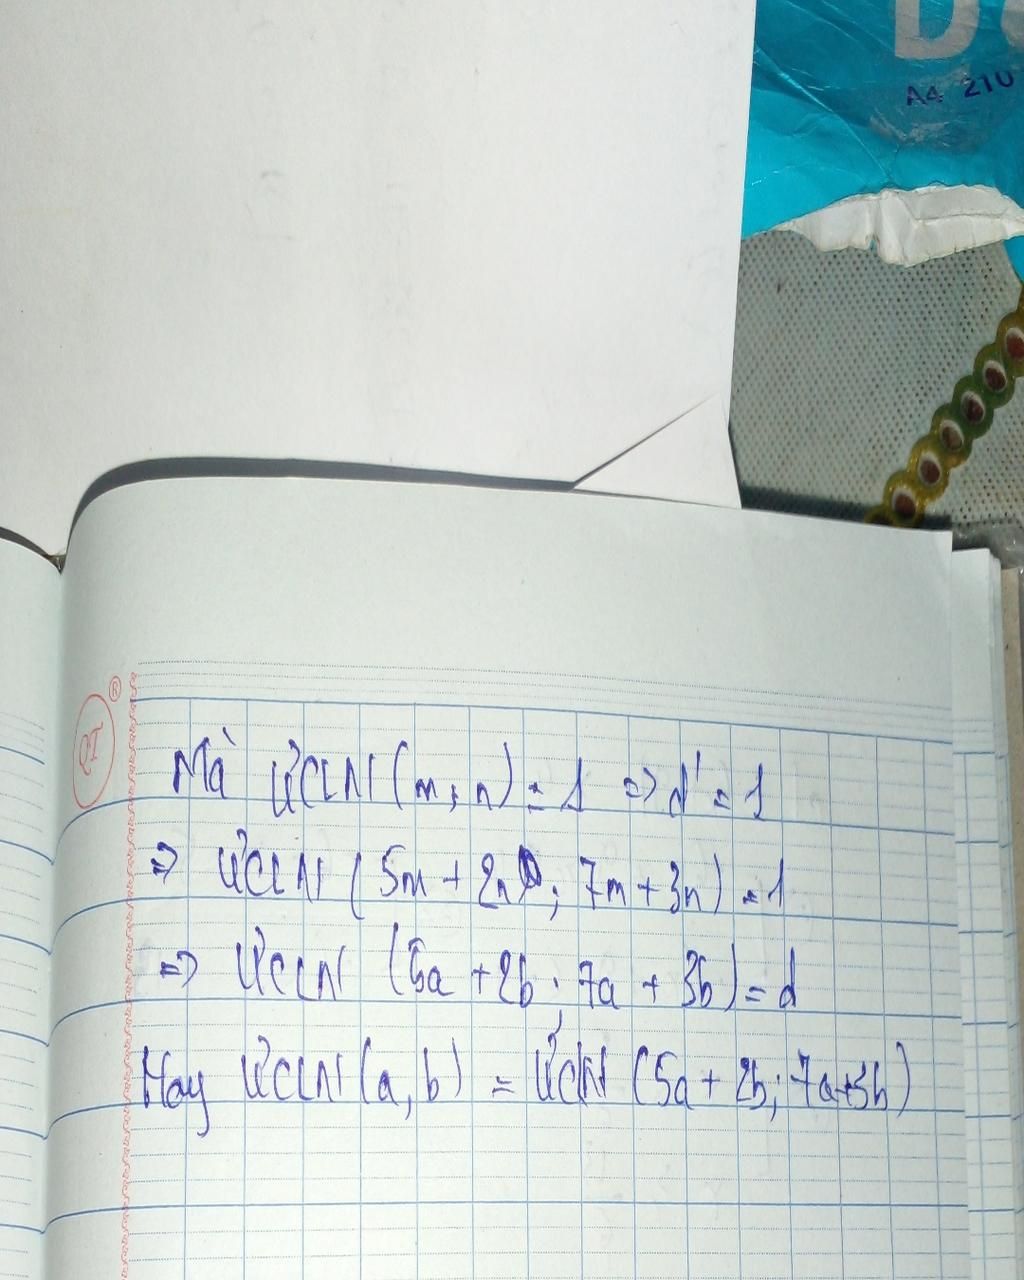 A4 210
Mà ƯCLN (m, n) = 1 => d' = 1
=> ƯCLN (5m + 2n; 7m + 3n) = 1
=> ƯCLN (5a + 2b; 7a + 3b) = d
Hay ƯCLN (a, b) = ƯCLN (5a + 2b; 7a+3b)